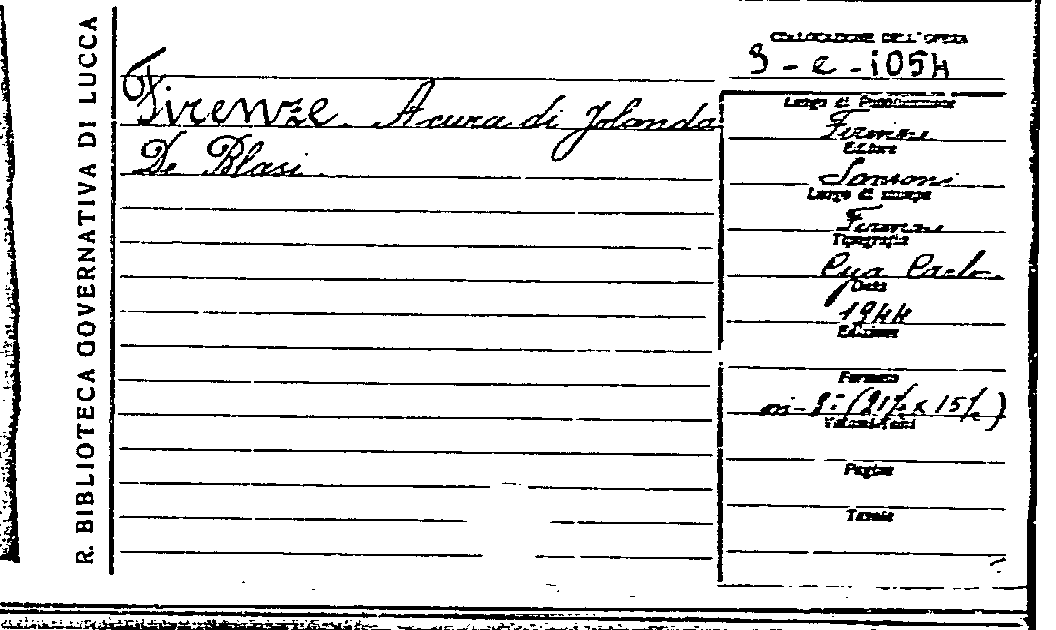 R. BIBLIOTECA GOVERNATIVA DI LUCCA
COLLOCAZIONE DELL'OPERA
Firenze. A cura di Jolanda
De Blasi.
Luogo di Pubblicazione
Firenze
Editore
Sansoni
Luogo di stampa
Firenze
Tipografia
Carlo
Data
1944
Edizione
Formato
in-8° (21½ x 15½)
Volumi/Tomi
Pagine
Tavole